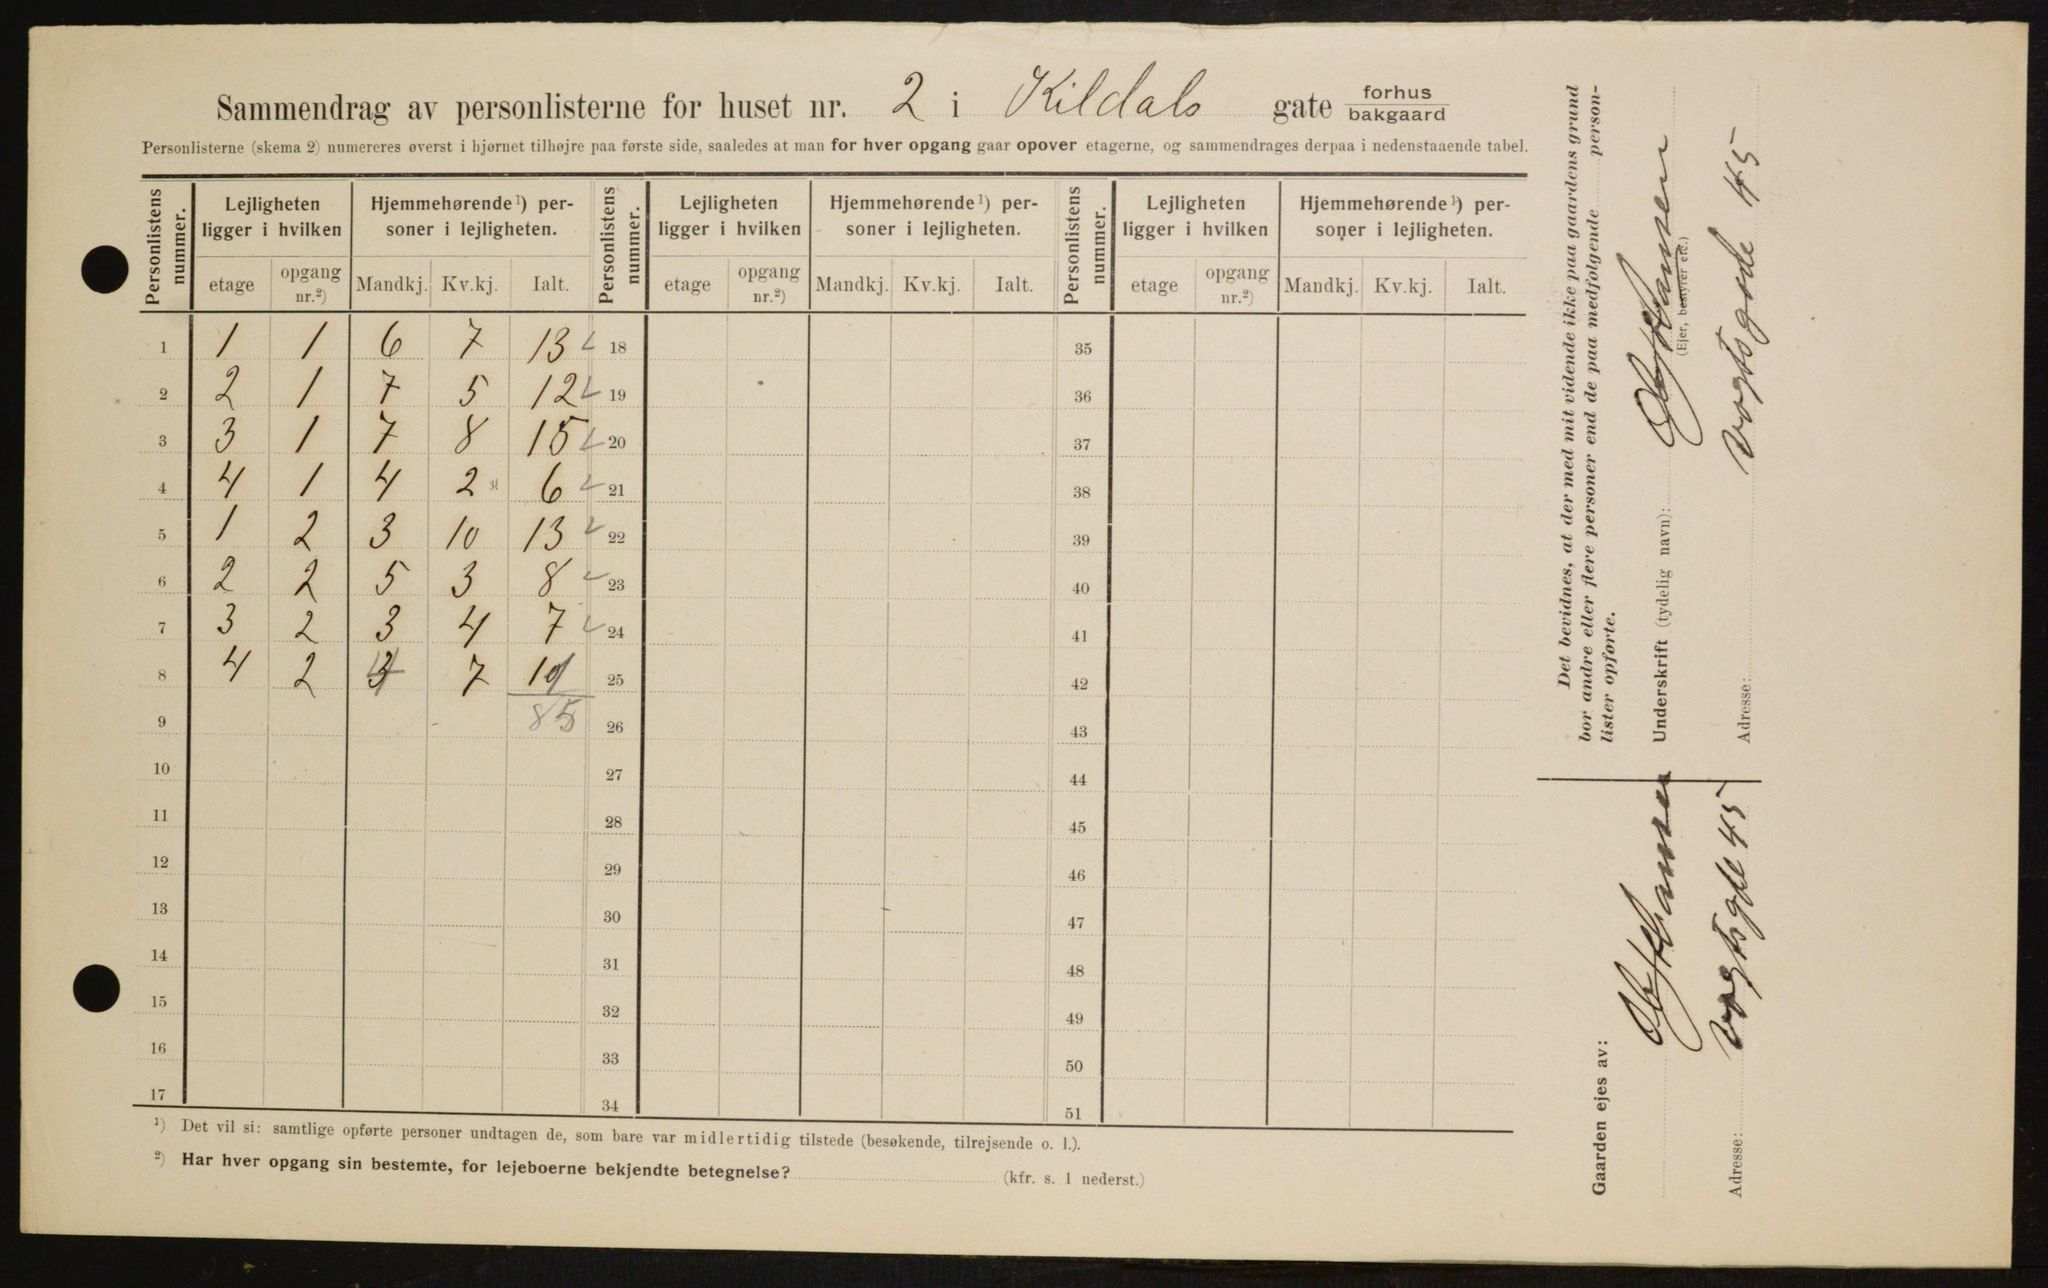 Sammendrag av personlisterne for huset nr. 2 i Kildals gate forhus bakgaard
Personlisterne (skema 2) numereres øverst i hjørnet tilhøjre paa første side, saaledes at man for hver opgang gaar opover etagerne, og sammendrages derpaa i nedenstaaende tabel.
Personlistens nummer. Lejligheten ligger i hvilken Hjemmehørende ¹) personer i lejligheten. Personlistens nummer. Lejligheten ligger i hvilken Hjemmehørende ¹) personer i lejligheten. Personlistens nummer. Lejligheten ligger i hvilken Hjemmehørende ¹) personer i lejligheten.
etage opgang nr.²) Mandkj. Kv.kj. Ialt. etage opgang nr.²) Mandkj. Kv.kj. Ialt. etage opgang nr.²) Mandkj. Kv.kj. Ialt.
1 1 1 6 7 13 18 35
2 2 1 7 5 12 19 36
3 3 1 7 8 15 20 37
4 4 1 4 2 6 21 38
5 1 2 3 10 13 22 39
6 2 2 5 3 8 23 40
7 3 2 3 4 7 24 41
8 4 2 4 7 11 25 42
9 85 26 43
10 27 44
11 28 45
12 29 46
13 30 47
14 31 48
15 32 49
16 33 50
17 34 51
¹) Det vil si: samtlige opførte personer undtagen de, som bare var midlertidig tilstede (besøkende, tilrejsende o. l.).
²) Har hver opgang sin bestemte, for lejeboerne bekjendte betegnelse? (kfr. s. 1 nederst.)
Det bevidnes, at der med mit vidende ikke paa gaardens grund
bor andre eller flere personer end de paa medfølgende personlister opførte.
Underskrift (tydelig navn): Hansen
(Ejer, bestyrer etc.)
Adresse: Vogts gade 45
Gaarden ejes av: Hansen
Adresse: Vogts gde 45